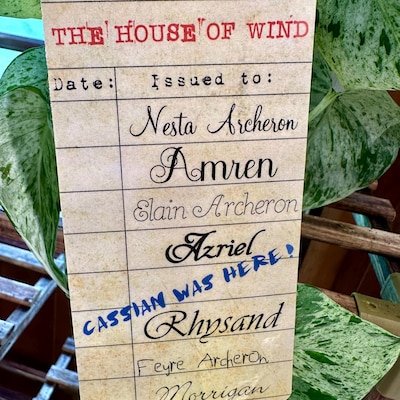 THE HOUSE OF WIND
Date: Issued to:
Nesta Archeron
Amren
Elain Archeron
Azriel
CASSIAN WAS HERE!
Rhysand
Feyre Archeron
Morrigan